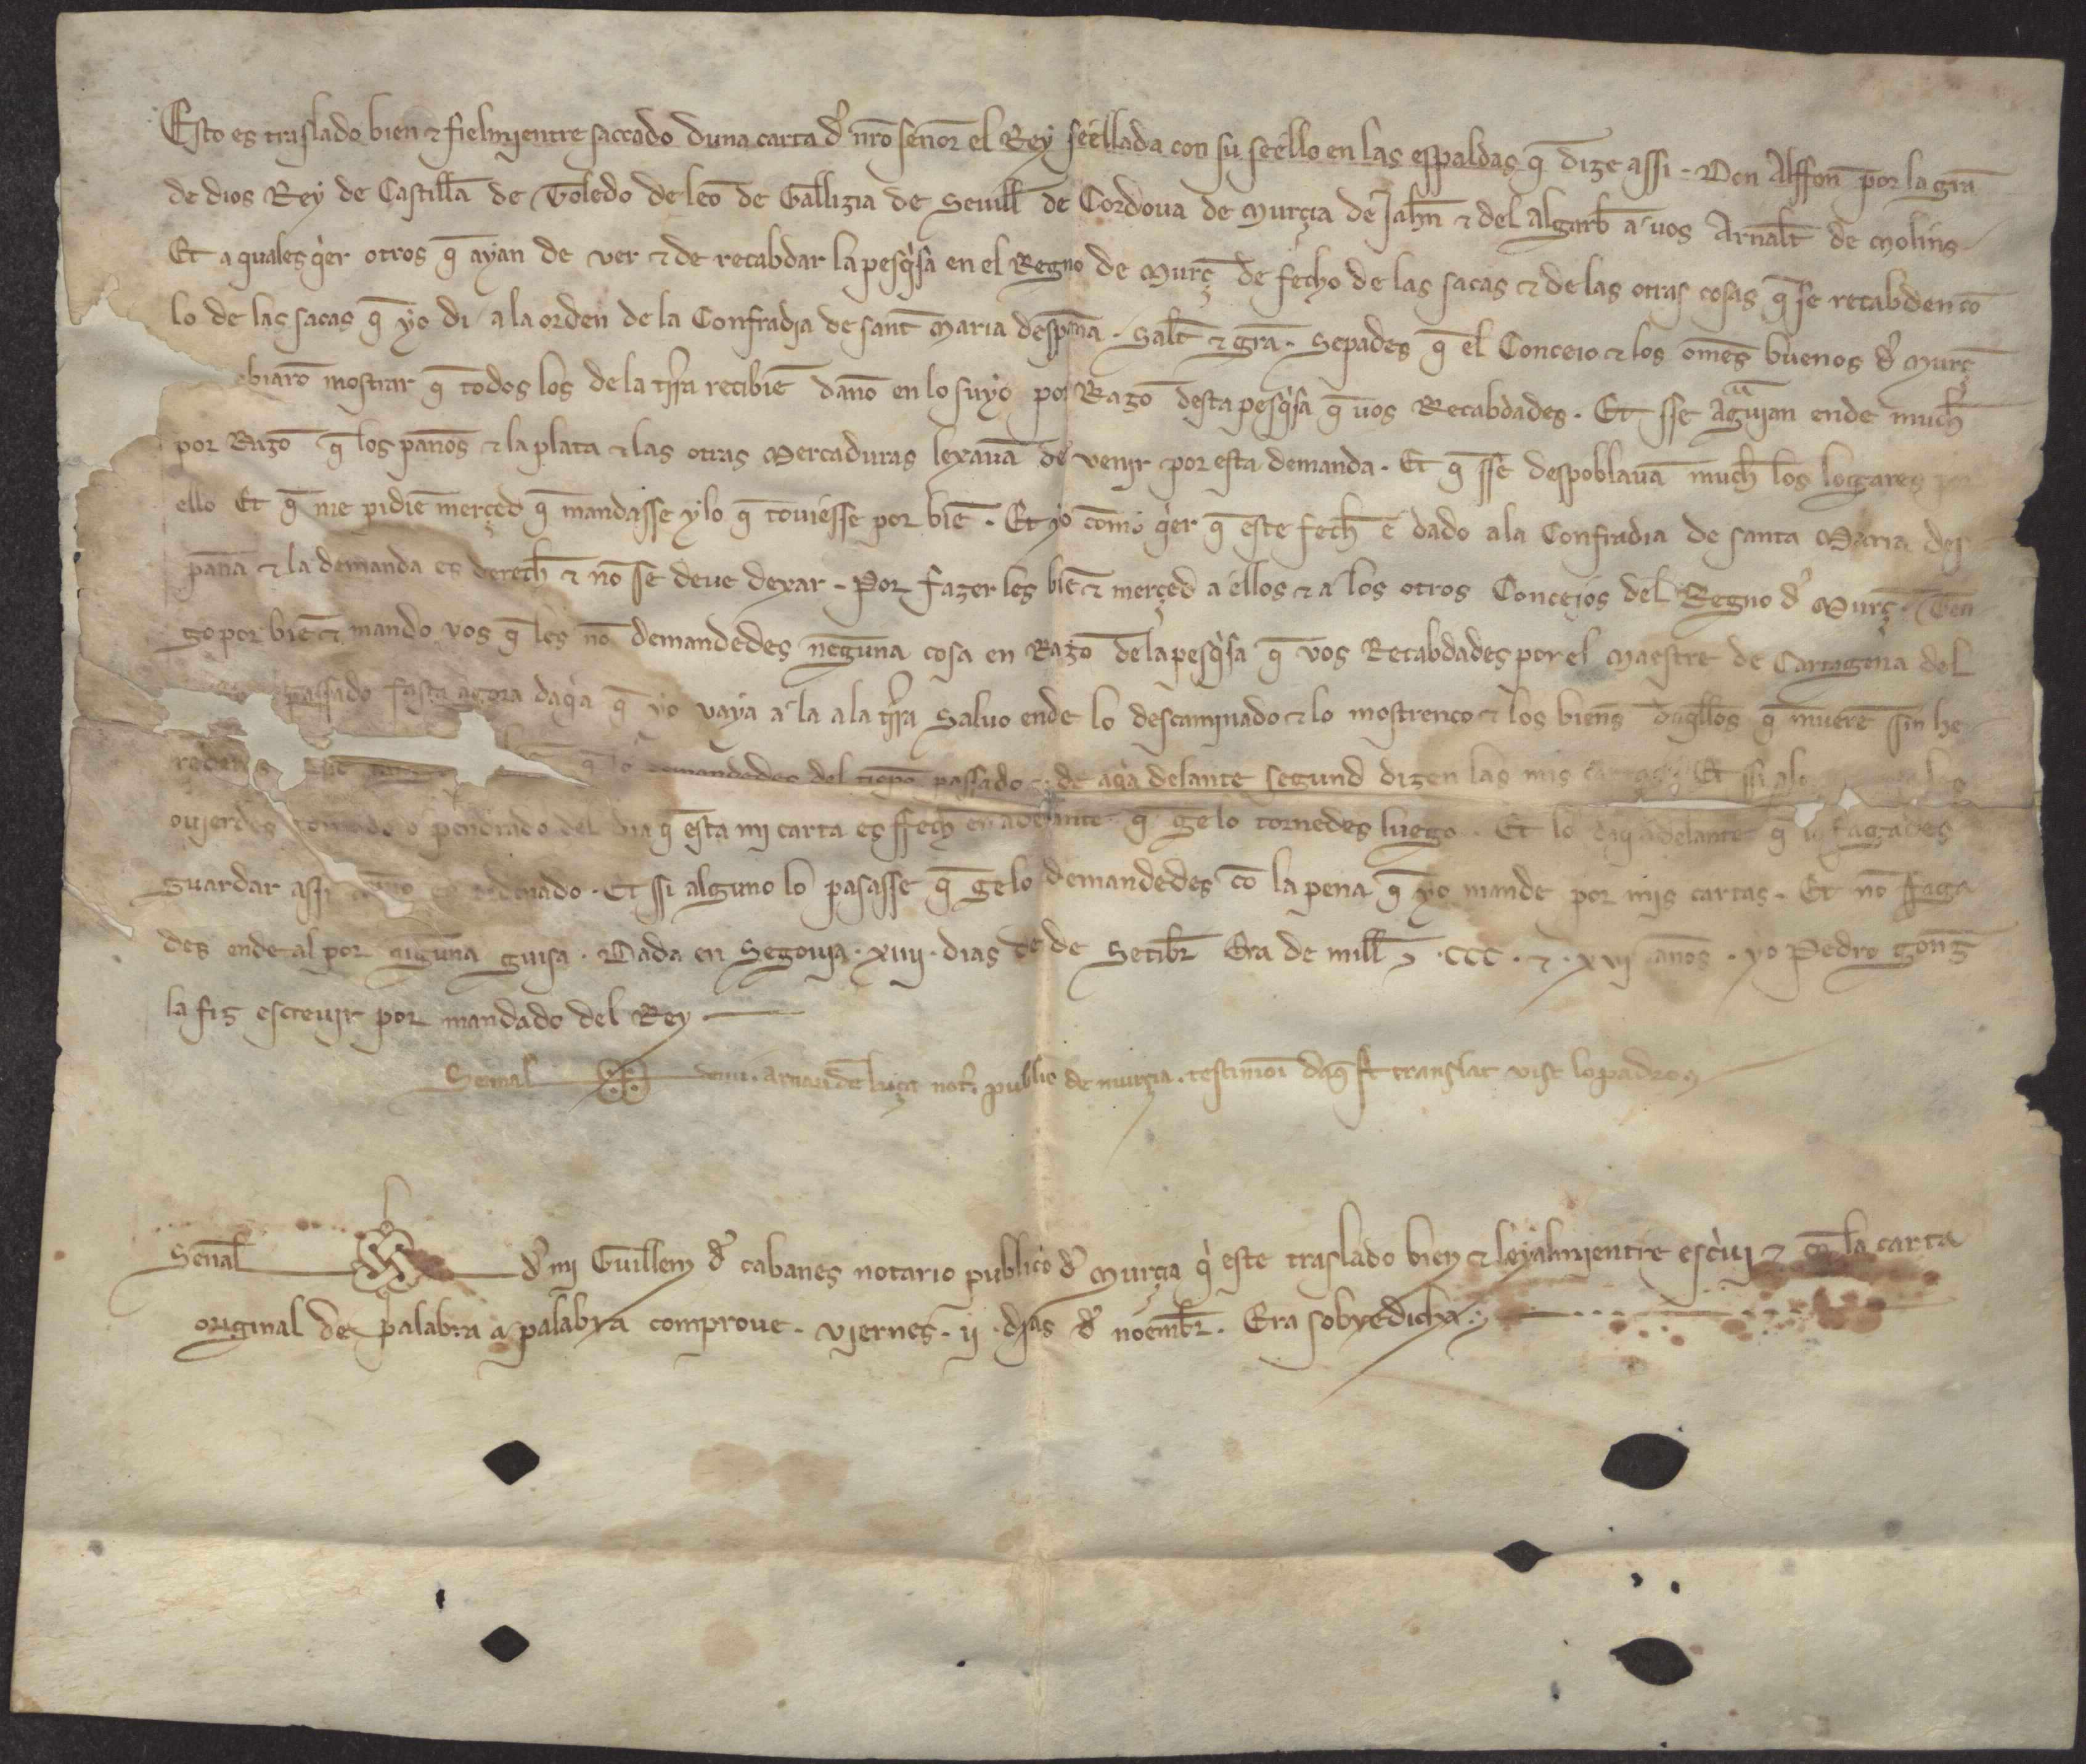 Esto es traslado bien & fielmjentre saccado duna carta d̄ nr̄o senor el Rey seellada con su seello en las espaldas q̄ dize assi . Don Alffon̄ por la gr̄a
de dios Rey de Castiella de Toledo de leō de Gallizia de Seuill̄ de Cordoua de Murçia de Jahn̄ & del Algarb̄ a uos Arnalt̄ de Molins
Et a quales q̇er otros q̄ ayan de ver & de recabdar la pesq̇sa en el Regno de Murç̄ de fecho de las sacas & de las otras cosas q̄ se recabden cō
lo de las sacas q̄ yo di a la orden de la Confradja de sant̄ Maria despan̄a . Salt̄ & gr̄a . Sepades q̄ el Conceio & los om̄es buenos d̄ Murç̄
ebiarō mostrar q̄ todos los de la tr̄ra recibiē dan̄o en lo suyo por Razō desta pesq̇sa q̄ uos Recabdades . Et sse Agͣuian ende much̄
por Razō q̄ los pan̄os & la plata & las otras Mercaduras lexauā de venir por esta demanda . Et q̄ sse despoblauā much̄ los logares por
ello Et q̄ me pidiē merçed q̄ mandasse y lo q̄ touiesse por biē . Et yo com̄o q̇er q̄ este fech̄ e dado a la Confradia de santa Maria des
pan̄a & la demanda es derech̄ & nō se deue dexar . Por fazer les biē & merçed a ellos & a los otros Concejos del Regno d̄ Murç̄ . Ten
go por biē & mando uos q̄ les nō demandedes neguna cosa en Razō de la pesq̇sa q̄ vos Recabdades por el Maestre de Cartagena del
passado fasta agora daq̇a q̄ yo vaya a la a la tr̄ra Saluo ende lo descaminado & lo mostrenco & los bien̄s daq̄llos q̄ muerē sin he
q̄ lo demandedes del tiēpo passado & de aq̇a delante segund dizen las mis cartas . Et ssi
oujerdes tomado o pendrado del dia q̄ esta mi carta es ffech̄ en adelante q̄ gelo tornedes luego . Et lo daq̇ adelante q̄ lo fagades
guardar assi como es ordenado . Et ssi alguno lo pasasse q̄ gelo demandedes cō la pena q̄ yo mande por mis cartas . Et nō ffaga
des ende al por niguna guisa . Dada en Segouja . xiiij . dias de de Setibr̄ Era de mill̄ & . CCC . & . xvj an̄os . yo Pedro gonz̄
la fiz escreuir por mandado del Rey
Senal demj . Arnau de luça not̄ . public de murçia . testimoni daq̄st translat vist lo padron
Senal̄ d̄ mj Guillem d̄ cabanes notario publico d̄ Murçia q̇ este traslado bien & leyalmjentre escriuj & con la carta
original de palabra a palabra comproue . Vjernes . ij . djas d̄ nōembr̄ . Era sobredicha .